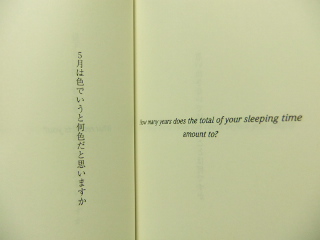 5月は色でいうと何色だと思いますか
How many years does the total of your sleeping time
amount to?